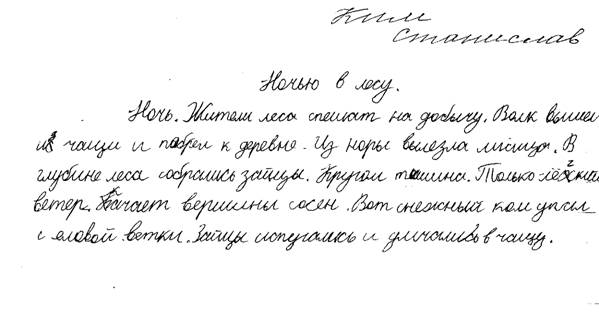 Ким
Станислав
Ночью в лесу.
Ночь. Жители леса спешат на добычу. Волк вышел
из чащи и побрел к деревне. Из норы вылезла лисица. В
глубине леса собрались зайцы. Кругом тишина. Только лёгкий
ветер. Качает вершины сосен. Вот снежный ком упал
с еловой ветки. Зайцы испугались и умчались в чащу.